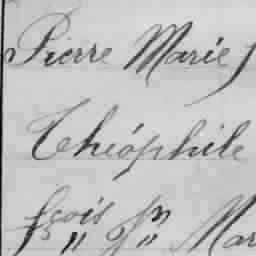 Pierre Marie J
Théophile
fçois fs Mar
„ „